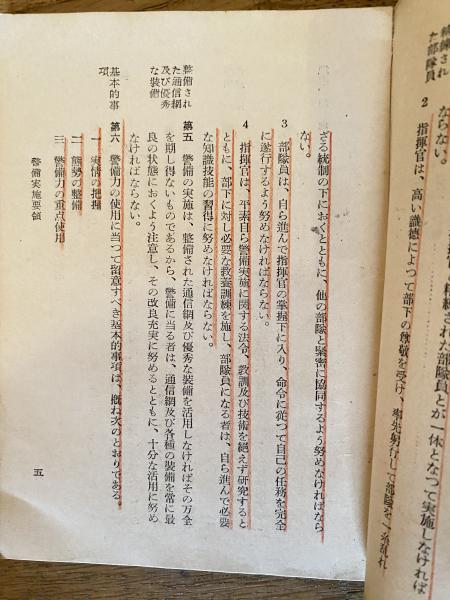 練された
た部隊員
ならない。
精練された部隊員とが一体となつて実施しなければ
2 指揮官は、高い識徳によつて部下の尊敬を受け、率先躬行して部隊を一糸乱れ
ざる統制の下におくとともに、他の部隊と緊密に協同するよう努めなければなら
ない。
3 部隊員は、自ら進んで指揮官の掌握下に入り、命令に従つて自己の任務を完全
に遂行するよう努めなければならない。
4 指揮官は、平素自ら警備実施に関する法令、教訓及び技術を絶えず研究すると
ともに、部下に対し必要な教養訓練を施し、部隊員になる者は、自ら進んで必要
な知識技能の習得に努めなければならない。
整備され
た通信網
及び優秀
な装備
第五 警備の実施は、整備された通信網及び優秀な装備を活用しなければその万全
を期し得ないものであるから、警備に当る者は、通信網及び各種の装備を常に最
良の状態におくよう注意し、その改良充実に努めるとともに、十分な活用に努め
なければならない。
基本的事
項
第六 警備力の使用に当つて留意すべき基本的事項は、概ね次のとおりである。
一 実情の把握
二 態勢の整備
三 警備力の重点使用
警備実施要領
五